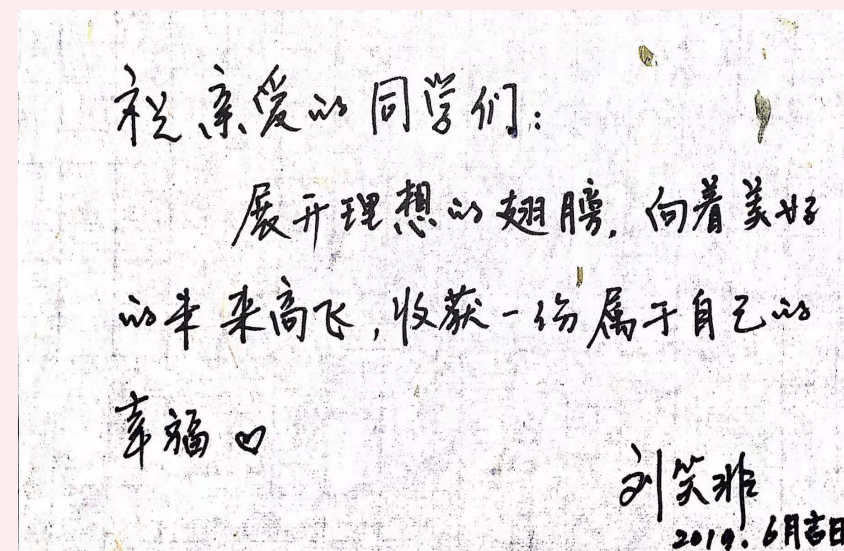 祝亲爱的同学们:
展开理想的翅膀,向着美好
的未来高飞,收获一份属于自己的
幸福♡
刘笑非
2019.6月吉日